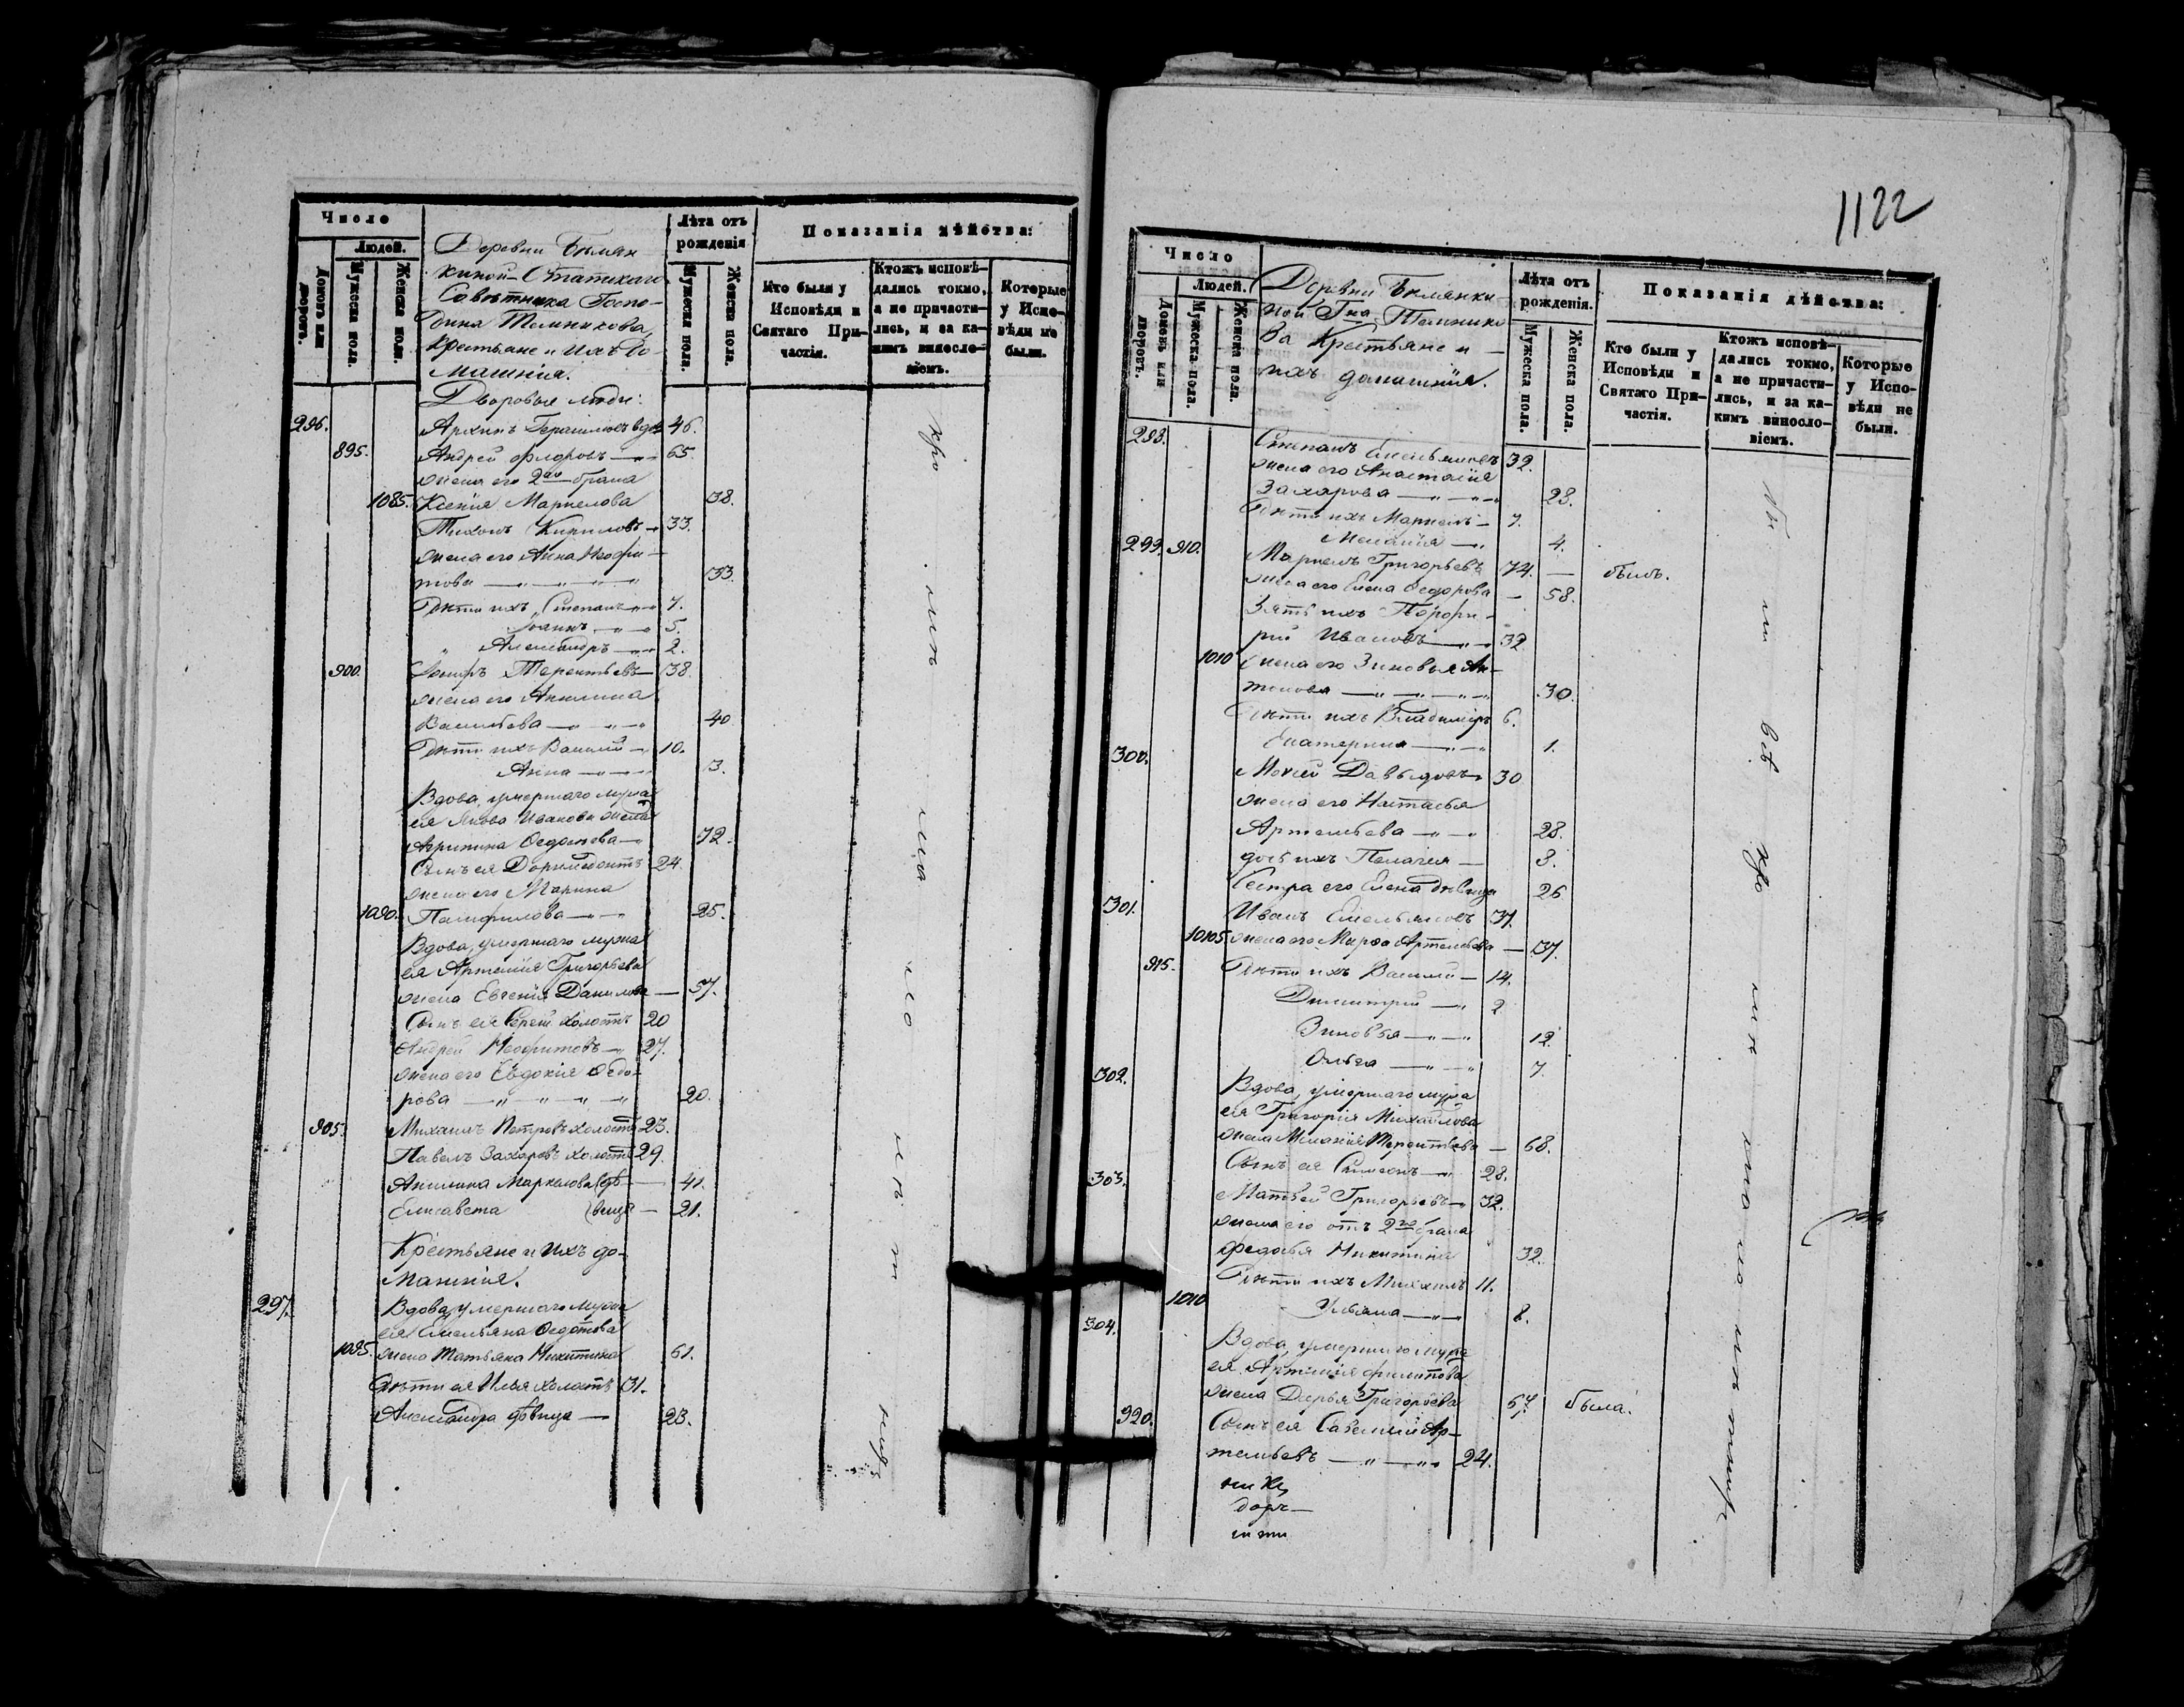 Число
Людей.
Домовъ или дворовъ.
Мужеска пола.
Женска пола.
Деревни Бѣлян-
киной Статскаго
Совѣтника Госпо-
дина Темникова,
Крестьяне и ихъ до-
машнія.
Лѣта отъ рожденія
Мужеска пола.
Женска пола.
Показанія дѣйства:
Кто были у Исповѣди и Святаго Причастія.
Ктожъ исповѣ-
дались токмо,
а не причасти-
лись, и за ка-
кимъ винosло-
віемъ.
Которые
у Испо-
вѣди не
были.
Дворовые люди:
296. Архипъ Герасимовъ вдов 46.
895. Андрей Ѳедоровъ 65.
жена его 2го брака
1085. Ксенія Маркелова 38.
Тихонъ Кириловъ 33.
жена его Анна Неофи-
това 33.
Дѣти ихъ Степанъ 7.
Іоаннъ 5.
Александръ 2.
900. Іосифъ Терентьевъ 38.
жена его Акилина
Васильева 40
Дѣти ихъ Василій 10.
Анна 3.
Вдова, умершаго мужа
ея Якова Иванова жена
Агрипина Ѳедотова 72.
Сынъ ея Доримедонтъ 24.
жена его Марина
1090. Памфилова 25.
Вдова, умершаго мужа
ея Артемія Григорьева
жена Евгенія Данилова 57.
Сынъ ея Сергѣй холостъ 20
Андрей Неофитовъ 27.
жена его Евдокія Ѳедо-
рова 20.
905. Михаилъ Петровъ холостъ 23.
Павелъ Захаровъ холостъ 29.
Акилина Маркелова дѣ- 41.
Елисавета вицы 21.
Крестьяне и ихъ до-
машнія.
297. Вдова, умершаго мужа
ея Емельяна Ѳедотова
1095. жена Татьяна Никитина 61.
Дѣти ея Илья холостъ 31.
Александра дѣвица 23.
1122
Число
Людей.
Домовъ или дворовъ.
Мужеска пола.
Женска пола.
Деревни Бѣлянки-
ной Гна Темнико-
ва Крестьяне и
ихъ домашнія.
Лѣта отъ
рожденія.
Мужеска пола.
Женска пола.
Показанія дѣйства:
Кто были у
Исповѣди и
Святаго При-
частія.
Ктожъ исповѣ-
дались токмо,
а не причасти-
лись, и за ка-
кимъ виносло-
віемъ.
Которые
у Испо-
вѣди не
были.
298. Степанъ Емельяновъ 32.
жена его Анастасія
Захарова 28.
Дѣти ихъ Маркелъ 7.
Меланія 4.
299. 910. Маркелъ Григорьевъ 74. былъ.
жена его Елена Ѳедорова 58.
Зять ихъ Порфи-
рій Ивановъ 32
1010 жена его Зиновья Ан-
тонова 30.
Дѣти ихъ Владиміръ 6.
Екатерина 1.
300. Мокей Давыдовъ 30
жена его Настасья
Артемьева 28.
дочь ихъ Пелагея 3.
Сестра его Елена дѣвица 26
301. Иванъ Емельяновъ 37.
10105 жена его Марѳа Артемьева 37.
915. Дѣти ихъ Василій 14.
Димитрій 2
Зиновья 12
Ольга 7.
302. Вдова, умершаго мужа
ея Григорія Михайлова
жена Меланія Терентьева 68.
Сынъ ея Симеонъ 28.
303. Матвей Григорьевъ 32.
жена его отъ 2го брака
Ѳедосья Никитина 32.
Дѣти ихъ Михаилъ 11.
1010 Ульяна 8.
304. Вдова, умершаго мужа
ея Артемія Филипова
жена Дарья Григорьева 67. была.
920. Сынъ ея Савелій Ар-
темьевъ 24.